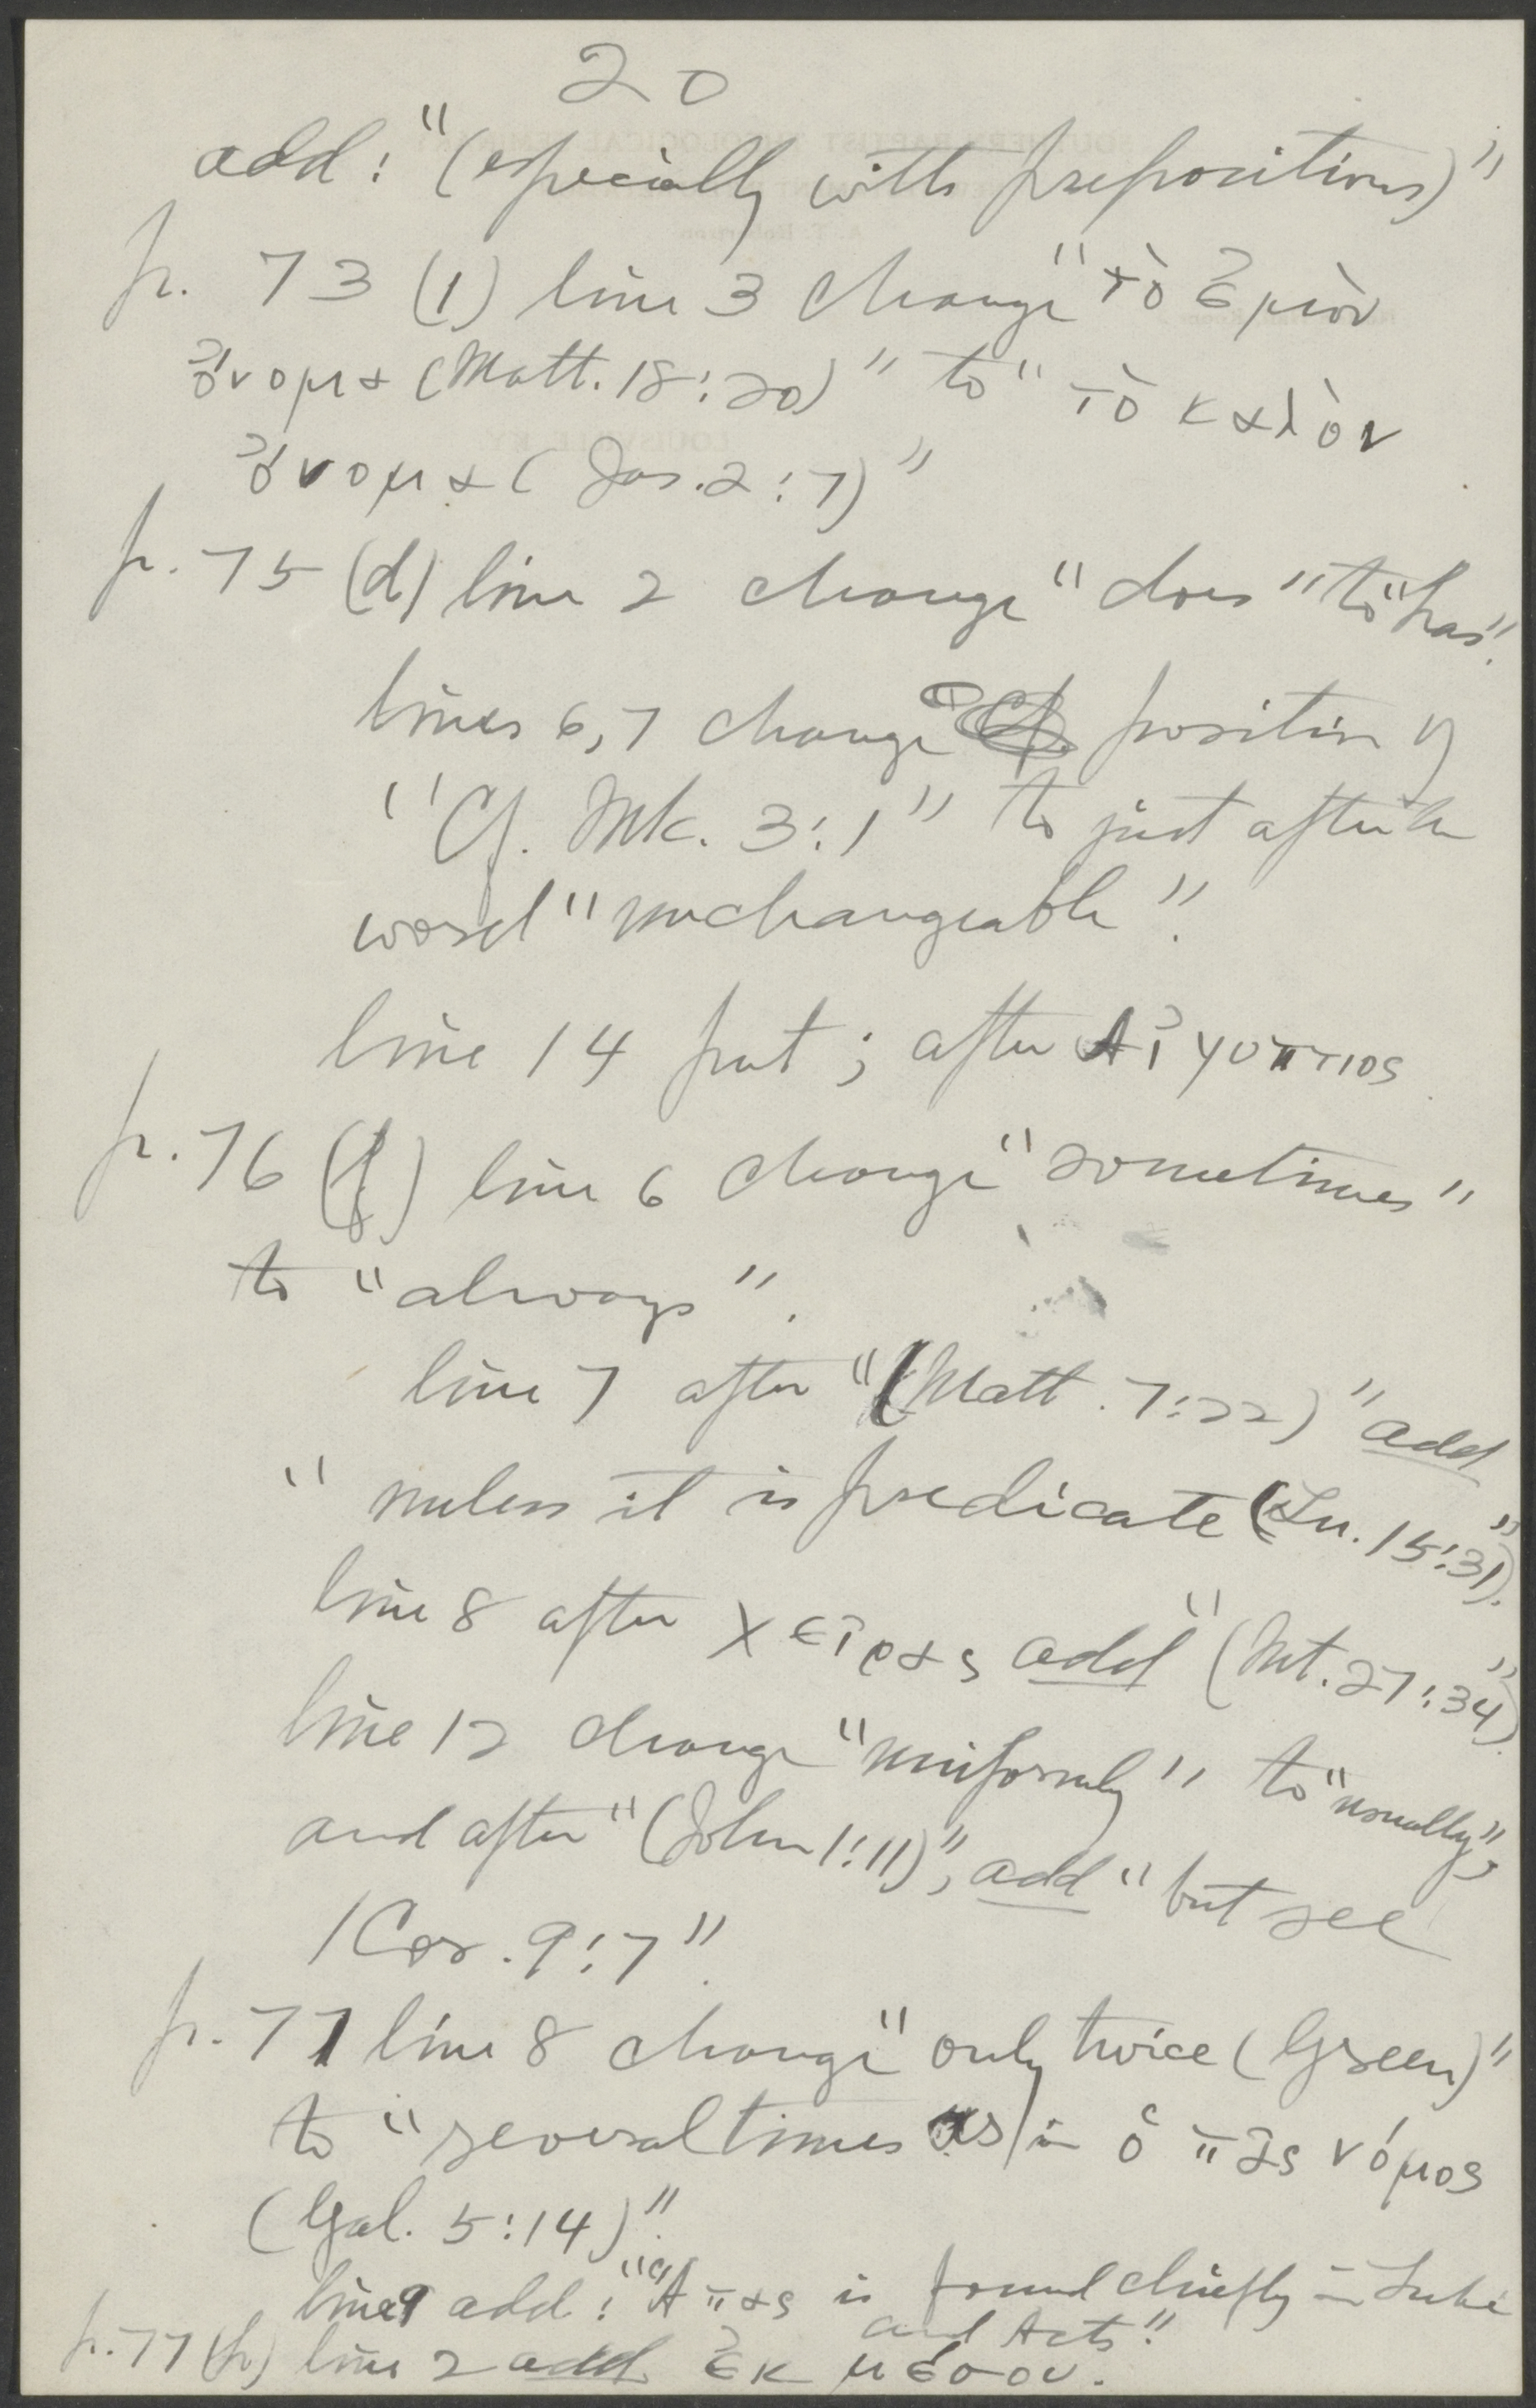 20
add: "(especially with prepositions)"
p. 73 (1) line 3 change "τὸ ἐμὸν
ὄνομα (Matt. 18:20)" to "τὸ καλὸν
ὄνομα (Jas. 2:7)"
p. 75 (d) line 2 change "does" to "has".
lines 6,7 change position of
"Cf. Mk. 3:1" to just after the
word "unchangeable".
line 14 put ; after Αἰγύπτιος
p. 76 (f) line 6 change "sometimes"
to "always".
line 7 after "(Matt. 7:22)" add
"unless it is predicate (Lu. 15:31)."
line 8 after χεῖρας add "(Mt. 27:34)."
line 12 change "uniformly" to "usually",
and after "(John 1:11)", add "but see
1 Cor. 9:7".
p. 77 line 8 change "only twice (Green)"
to "several times as in ὁ πᾶς νόμος
(Gal. 5:14)".
line 9 add: "Ἅπας is found chiefly in Luke
and Acts".
p. 77 (h) line 2 add ἐκ μέσου.